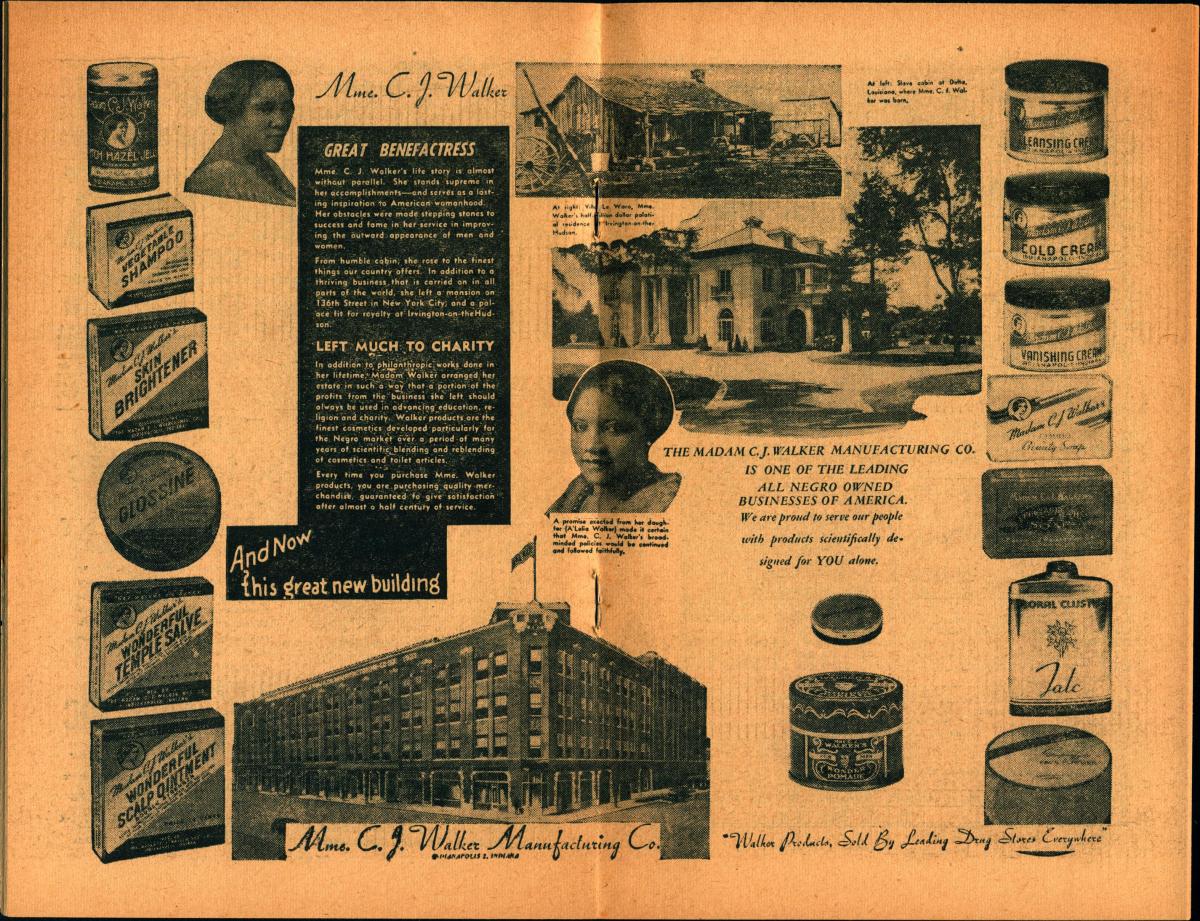 Mme. C. J. Walker
GREAT BENEFACTRESS
Mme. C. J. Walker's life story is almost
without parallel. She stands supreme in
her accomplishments—and serves as a last-
ing inspiration to American womanhood.
Her obstacles were made stepping stones to
success and fame in her service in improv-
ing the outward appearance of men and
women.
From humble cabin, she rose to the finest
things our country offers. In addition to a
thriving business, that is carried on in all
parts of the world, she left a mansion on
136th Street in New York City; and a pal-
ace fit for royalty at Irvington-on-theHud-
son.
LEFT MUCH TO CHARITY
In addition to philanthropic works done in
her lifetime, Madam Walker arranged her
estate in such a way that a portion of the
profits from the business she left should
always be used in advancing education, re-
ligion and charity. Walker products are the
finest cosmetics developed particularly for
the Negro market over a period of many
years of scientific blending and reblending
of cosmetics and toilet articles.
Every time you purchase Mme. Walker
products, you are purchasing quality mer-
chandise, guaranteed to give satisfaction
after almost a half century of service.
And Now
this great new building
Mme. C. J. Walker Manufacturing Co.
INDIANAPOLIS 2, INDIANA
At left: Slave cabin at Delta,
Louisiana, where Mme. C. J. Wal-
ker was born.
At right: Le Waro, Mme.
Walker's half million dollar palati-
al residence Irvington-on-the-
Hudson.
A promise exacted from her daugh-
ter (A'Lelia Walker) made it certain
that Mme. C. J. Walker's broad-
minded policies would be continued
and followed faithfully.
THE MADAM C. J. WALKER MANUFACTURING CO.
IS ONE OF THE LEADING
ALL NEGRO OWNED
BUSINESSES OF AMERICA.
We are proud to serve our people
with products scientifically de-
signed for YOU alone.
"Walker Products, Sold By Leading Drug Stores Everywhere"
HAZEL JELL
VEGETABLE
SHAMPOO
Madam C. J. Walker's
SKIN
BRIGHTENER
GLOSSINE
Madam C. J. Walker's
WONDERFUL
TEMPLE SALVE
Madam C. J. Walker's
WONDERFUL
SCALP OINTMENT
CLEANSING CREAM
INDIANAPOLIS, INDIANA
COLD CREAM
INDIANAPOLIS, INDIANA
VANISHING CREAM
INDIANAPOLIS, INDIANA
Madam C. J. Walker's
Beauty Soap
FLORAL CLUSTER
Talc
WALKER'S
WONDER
POMADE